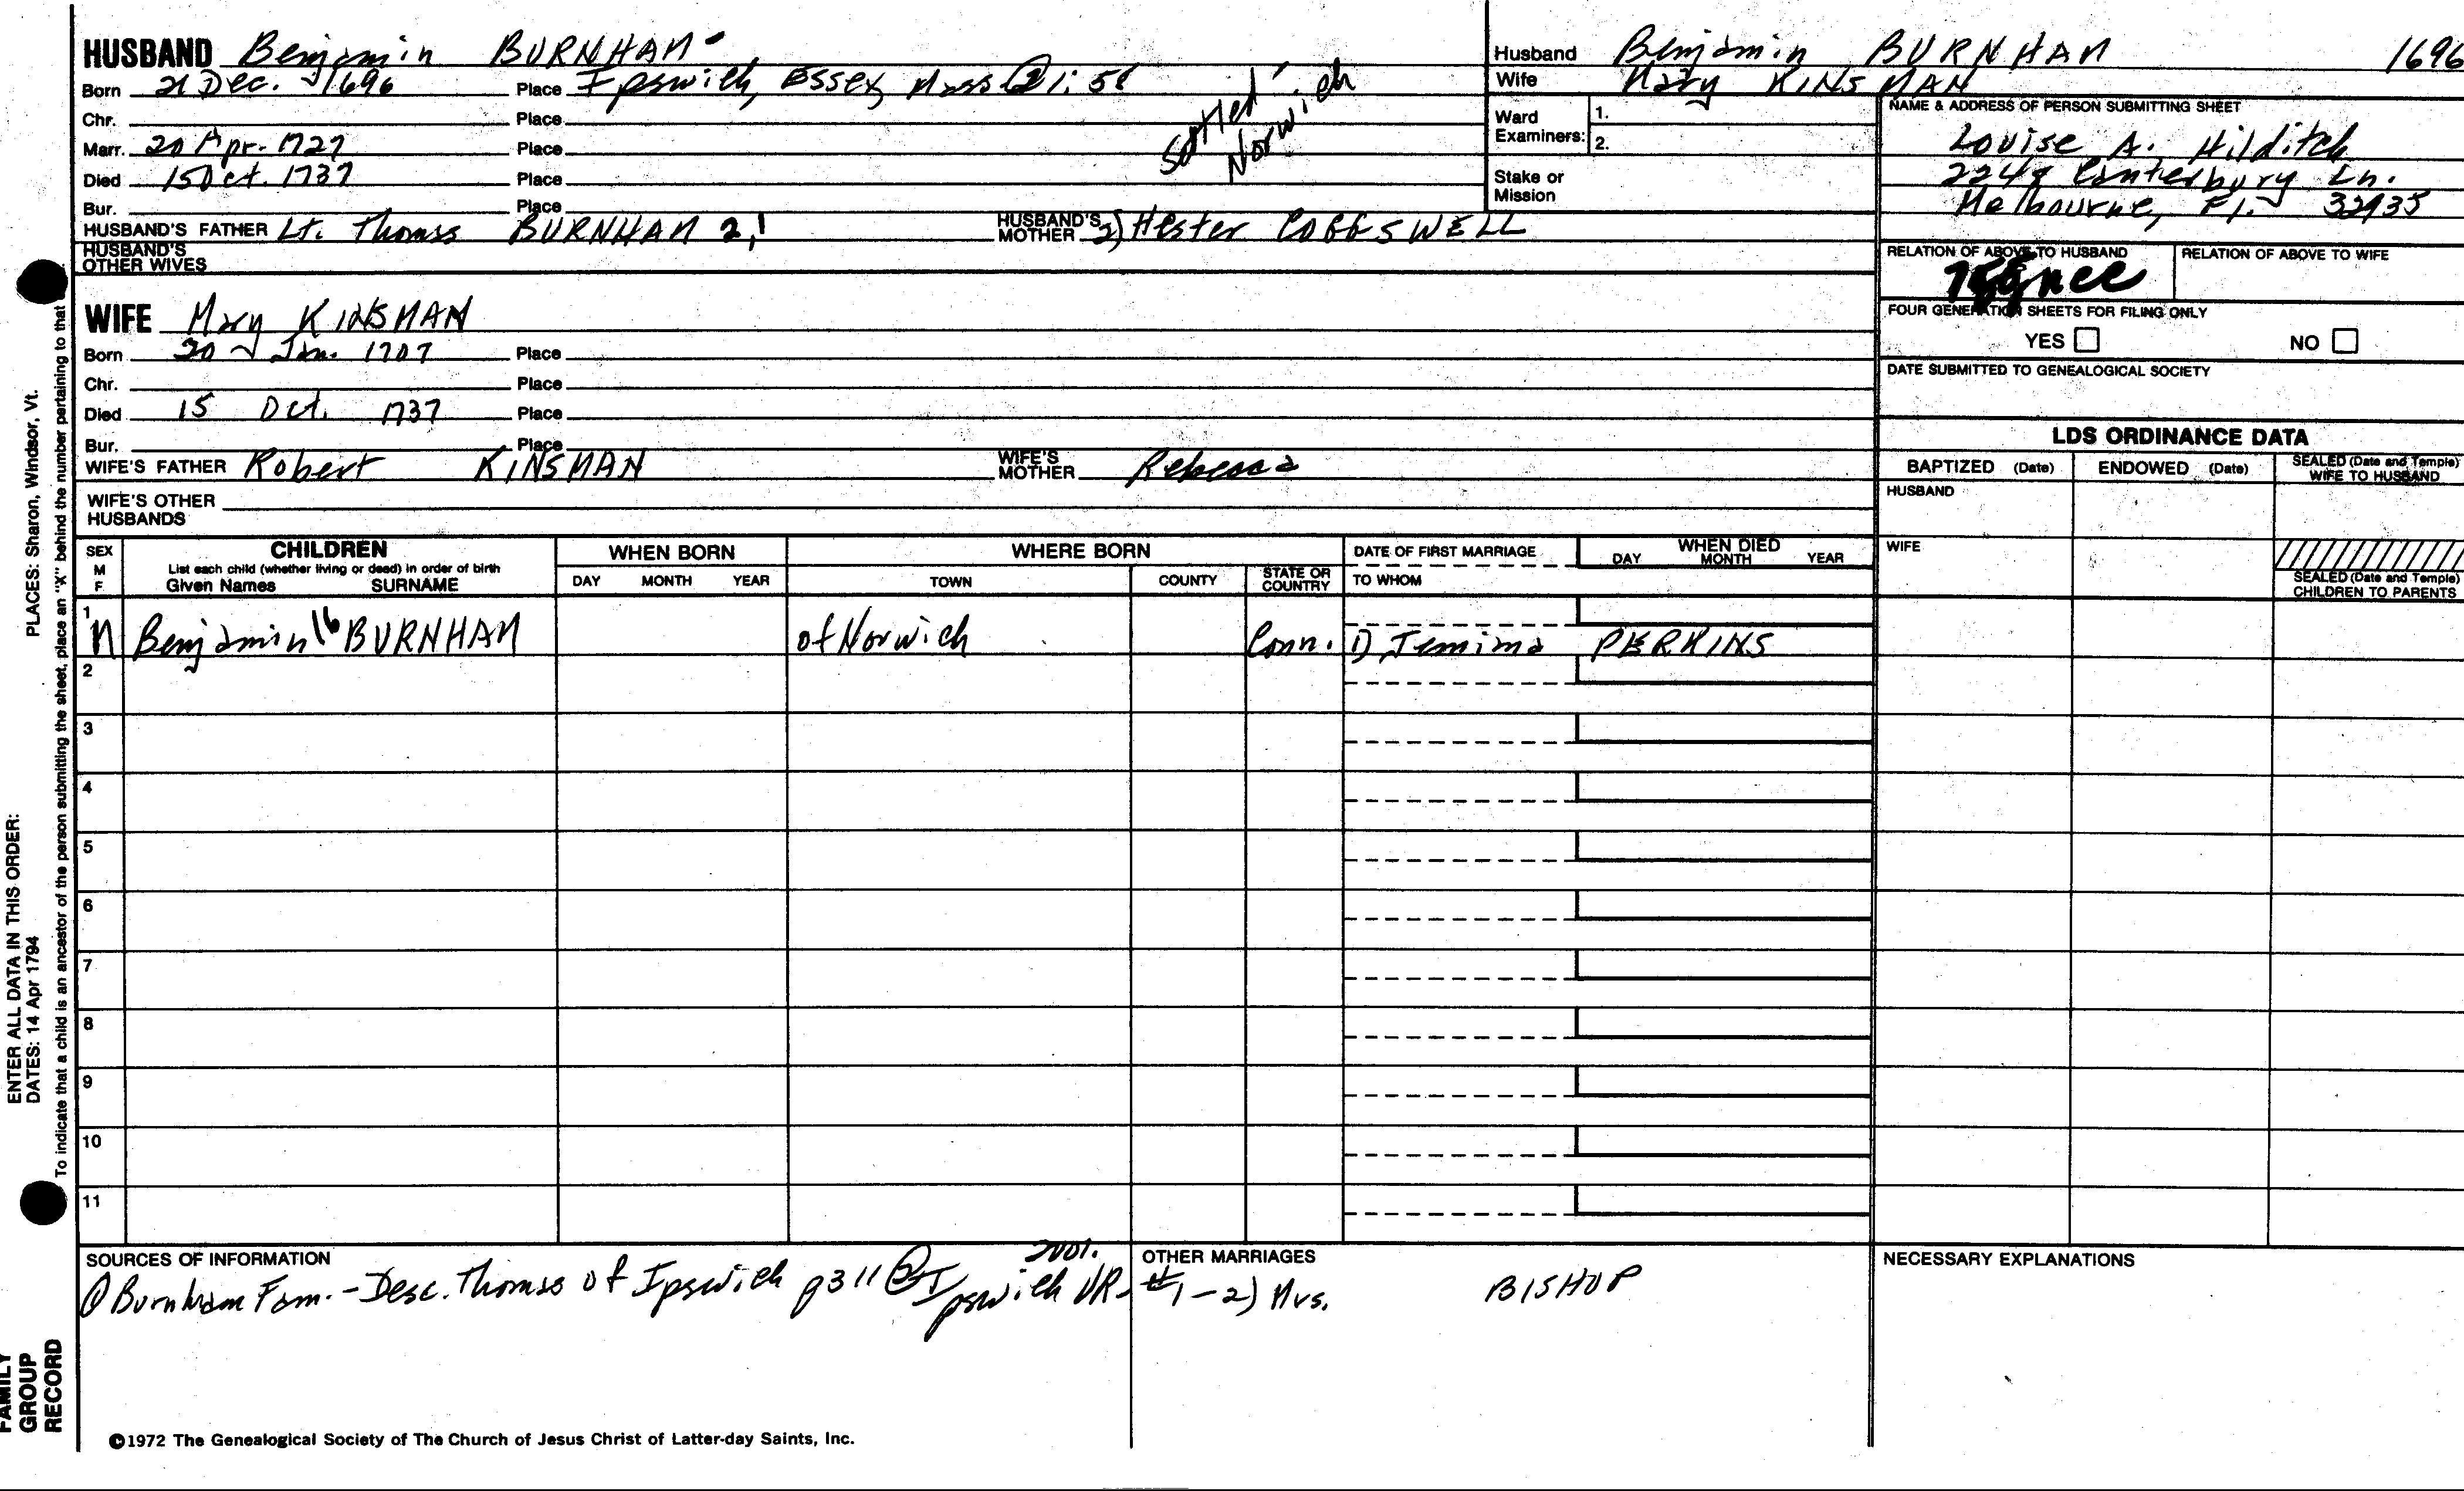 HUSBAND Benjamin BURNHAM
Born 21 Dec. 1696 Place Ipswich, Essex, Mass ② 1:58
Chr. Place
Marr. 20 Apr. 1727 Place
Died 15 Oct. 1737 Place
Bur. Place
settled Norwich
HUSBAND'S FATHER Lt. Thomas BURNHAM 2,1 HUSBAND'S MOTHER 2) Hester COGGSWELL
HUSBAND'S OTHER WIVES
Husband Benjamin BURNHAM 1696
Wife Mary KINSMAN
Ward Examiners: 1.
2.
Stake or Mission
NAME & ADDRESS OF PERSON SUBMITTING SHEET
Louise A. Hilditch
2248 Canterbury Ln.
Melbourne, Fl. 32935
RELATION OF ABOVE TO HUSBAND RELATION OF ABOVE TO WIFE
FOUR GENERATION SHEETS FOR FILING ONLY
YES NO
DATE SUBMITTED TO GENEALOGICAL SOCIETY
WIFE Mary KINSMAN
Born 20 Jan. 1707 Place
Chr. Place
Died 15 Oct. 1737 Place
Bur. Place
WIFE'S FATHER Robert KINSMAN WIFE'S MOTHER Rebecca
WIFE'S OTHER HUSBANDS
LDS ORDINANCE DATA
BAPTIZED (Date) ENDOWED (Date) SEALED (Date and Temple) WIFE TO HUSBAND
HUSBAND
WIFE
SEALED (Date and Temple) CHILDREN TO PARENTS
SEX M F CHILDREN WHEN BORN WHERE BORN DATE OF FIRST MARRIAGE WHEN DIED
List each child (whether living or dead) in order of birth DAY MONTH YEAR
Given Names SURNAME DAY MONTH YEAR TOWN COUNTY STATE OR COUNTRY TO WHOM
1 M Benjamin 16 BURNHAM of Norwich Conn. 1) Jemima PERKINS
2
3
4
5
6
7
8
9
10
11
SOURCES OF INFORMATION
① Burnham Fam. - Desc. Thomas of Ipswich p311 ② Ipswich VR
OTHER MARRIAGES
#1-2) Mrs. BISHOP
NECESSARY EXPLANATIONS
©1972 The Genealogical Society of The Church of Jesus Christ of Latter-day Saints, Inc.
PLACES: Sharon, Windsor, Vt.
ENTER ALL DATA IN THIS ORDER:
DATES: 14 Apr 1794
To indicate that a child is an ancestor of the person submitting the sheet, place an "X" behind the number pertaining to that
FAMILY GROUP RECORD